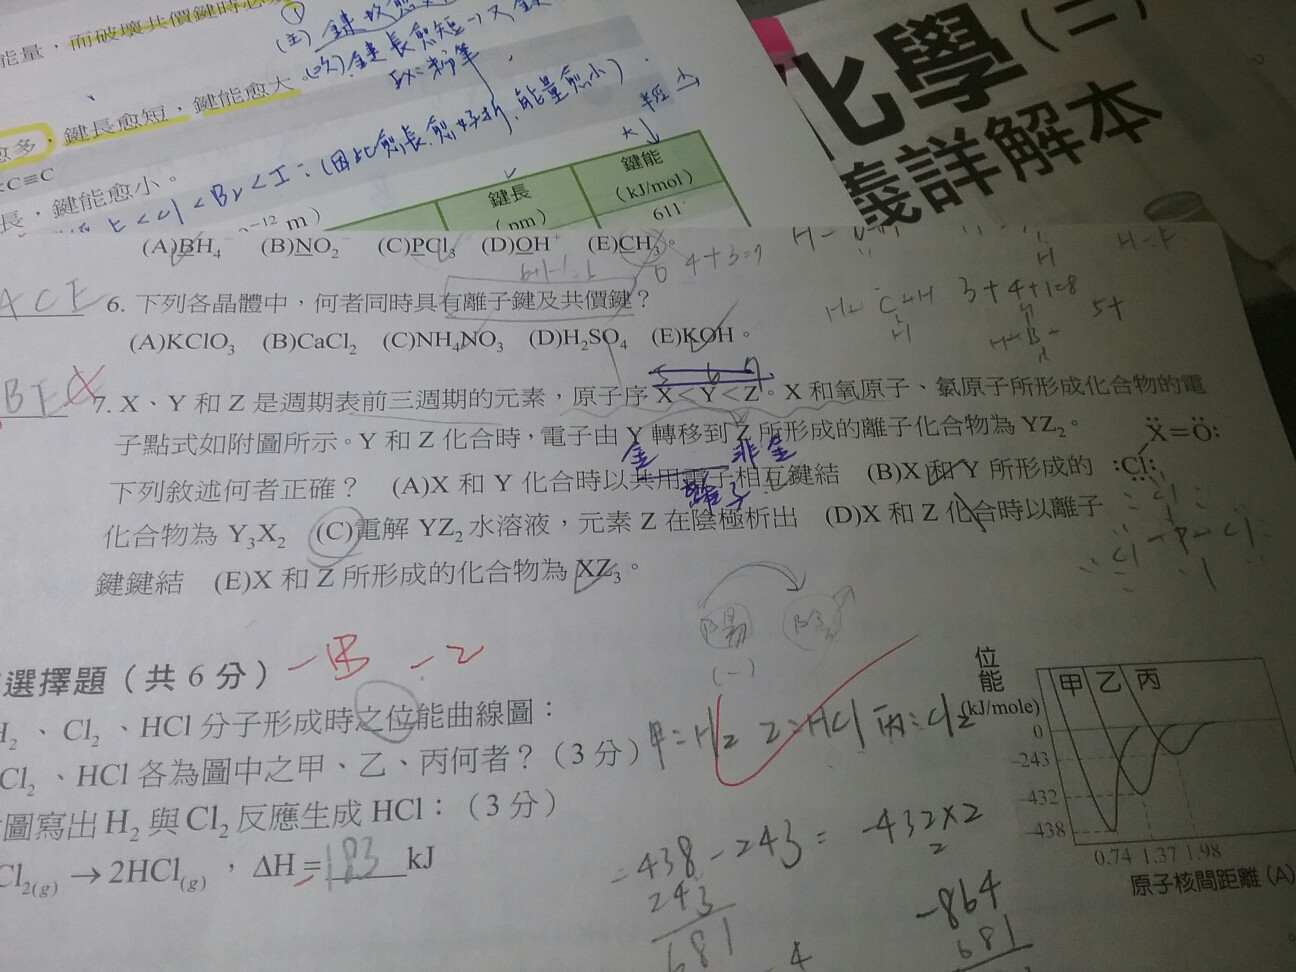 能量，而破壞共價鍵時必
①
(主)
(次) 鍵長愈短
EX: 粉筆
愈多，鍵長愈短，鍵能愈大。
C≡C
長，鍵能愈小。
< Cl < Br < I：(因此愈長，愈好折，能量愈小)
鍵長
(nm)
鍵能
(kJ/mol)
611
化學(二)
義詳解本
(A)BH₄⁻ (B)NO₂⁻ (C)PCl₃ (D)OH⁺ (E)CH₃。
6+1-1=6
4+3=7
H-F
ACE
6. 下列各晶體中，何者同時具有離子鍵及共價鍵？
(A)KClO₃ (B)CaCl₂ (C)NH₄NO₃ (D)H₂SO₄ (E)KOH。
3+4+1=8
5+
BE
7. X、Y 和 Z 是週期表前三週期的元素，原子序 X<Y<Z。X 和氧原子、氯原子所形成化合物的電
子點式如附圖所示。Y 和 Z 化合時，電子由 Y 轉移到 Z 所形成的離子化合物為 YZ₂。
金 非金
離子
下列敘述何者正確？ (A)X 和 Y 化合時以共用電子相互鍵結 (B)X 和 Y 所形成的
化合物為 Y₃X₂ (C)電解 YZ₂ 水溶液，元素 Z 在陰極析出 (D)X 和 Z 化合時以離子
鍵鍵結 (E)X 和 Z 所形成的化合物為 XZ₃。
Ẍ=Ö:
:Cl:
Cl
Cl-P-Cl
陽
(-)
選擇題（共 6 分）
-2
H₂、Cl₂、HCl 分子形成時之位能曲線圖：
Cl₂、HCl 各為圖中之甲、乙、丙何者？（3 分）
甲=H₂ 乙=HCl 丙=Cl₂
圖寫出 H₂ 與 Cl₂ 反應生成 HCl：（3 分）
Cl₂(g) → 2HCl(g)，ΔH = 183 kJ
-438-243= -432×2
243
681
-864
681
位能
(kJ/mole)
甲 乙 丙
0
-243
-432
-438
0.74 1.37 1.98
原子核間距離 (A)